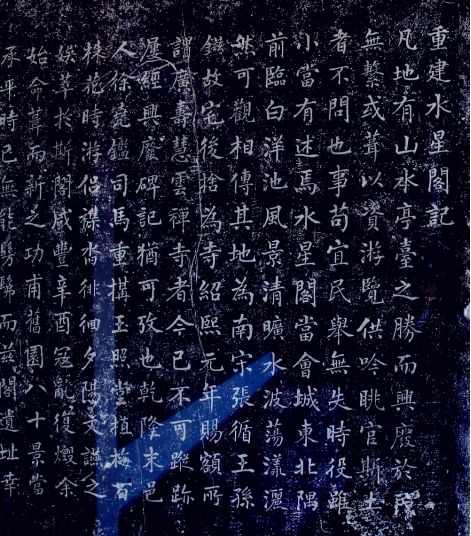 重建水星閣記
凡地有山水亭臺之勝而興廢於
無繫或葺以資游覽供吟眺官斯土
者不問也事苟宜民舉無失時役雖
小當有述焉水星閣當會城東北隅
前臨白洋池風景清曠水波蕩漾灑
然可觀相傳其地為南宋張循王孫
鎡故宅後捨為寺紹熙元年賜額所
謂廣壽慧雲禪寺者今已不可蹤跡
屢經興廢碑記猶可攷也乾隆末邑
人徐堯鑑司馬重搆玉照堂植梅百
株花時游侶譟沓徘徊夕陽文讌之
娛萃於斯閣咸豐辛酉寇亂復燬余
始命葺而新之功甫舊園八十景當
承平時已無能髣髴而茲閣遺址幸